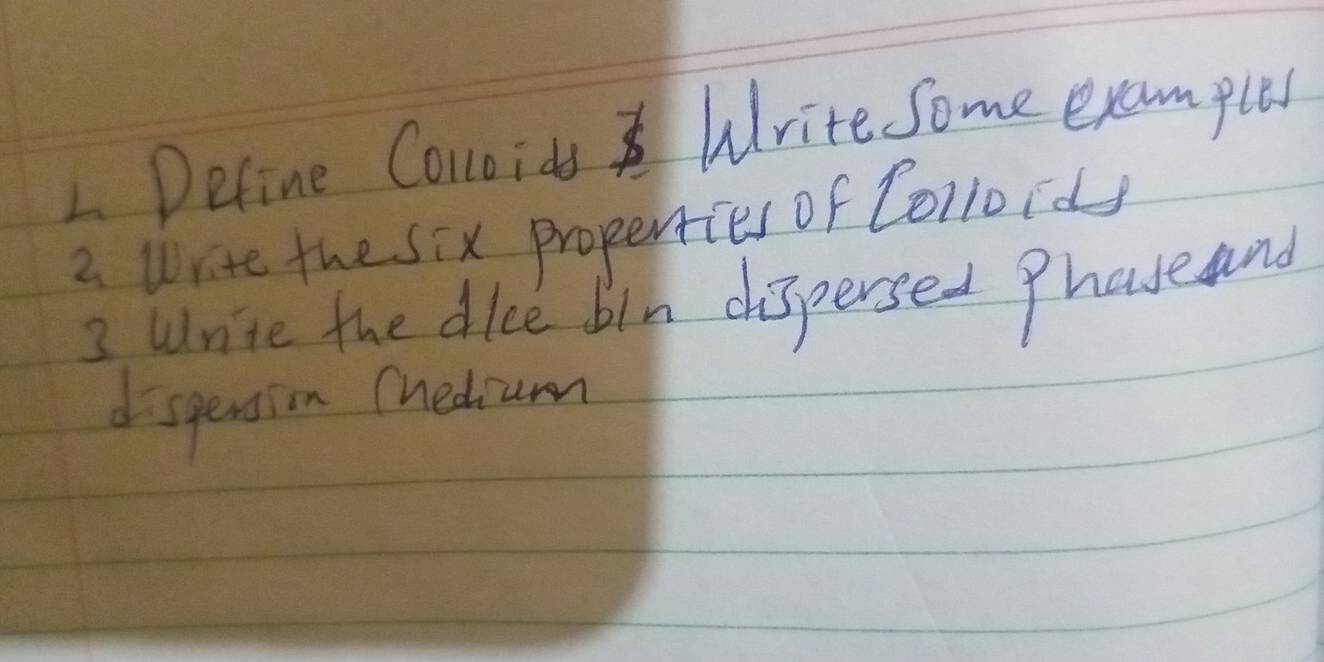 1. Define Colloids & Write Some examples
2. Write the Six properties of Colloids
3 Write the d/ce b/n dispersed Phase and
dispersion Medium